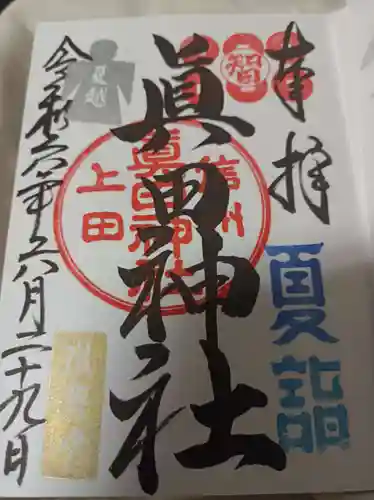 奉拝
夏詣
眞田神社
信州
眞田神社
上田
夏越
令和六年六月二十九日